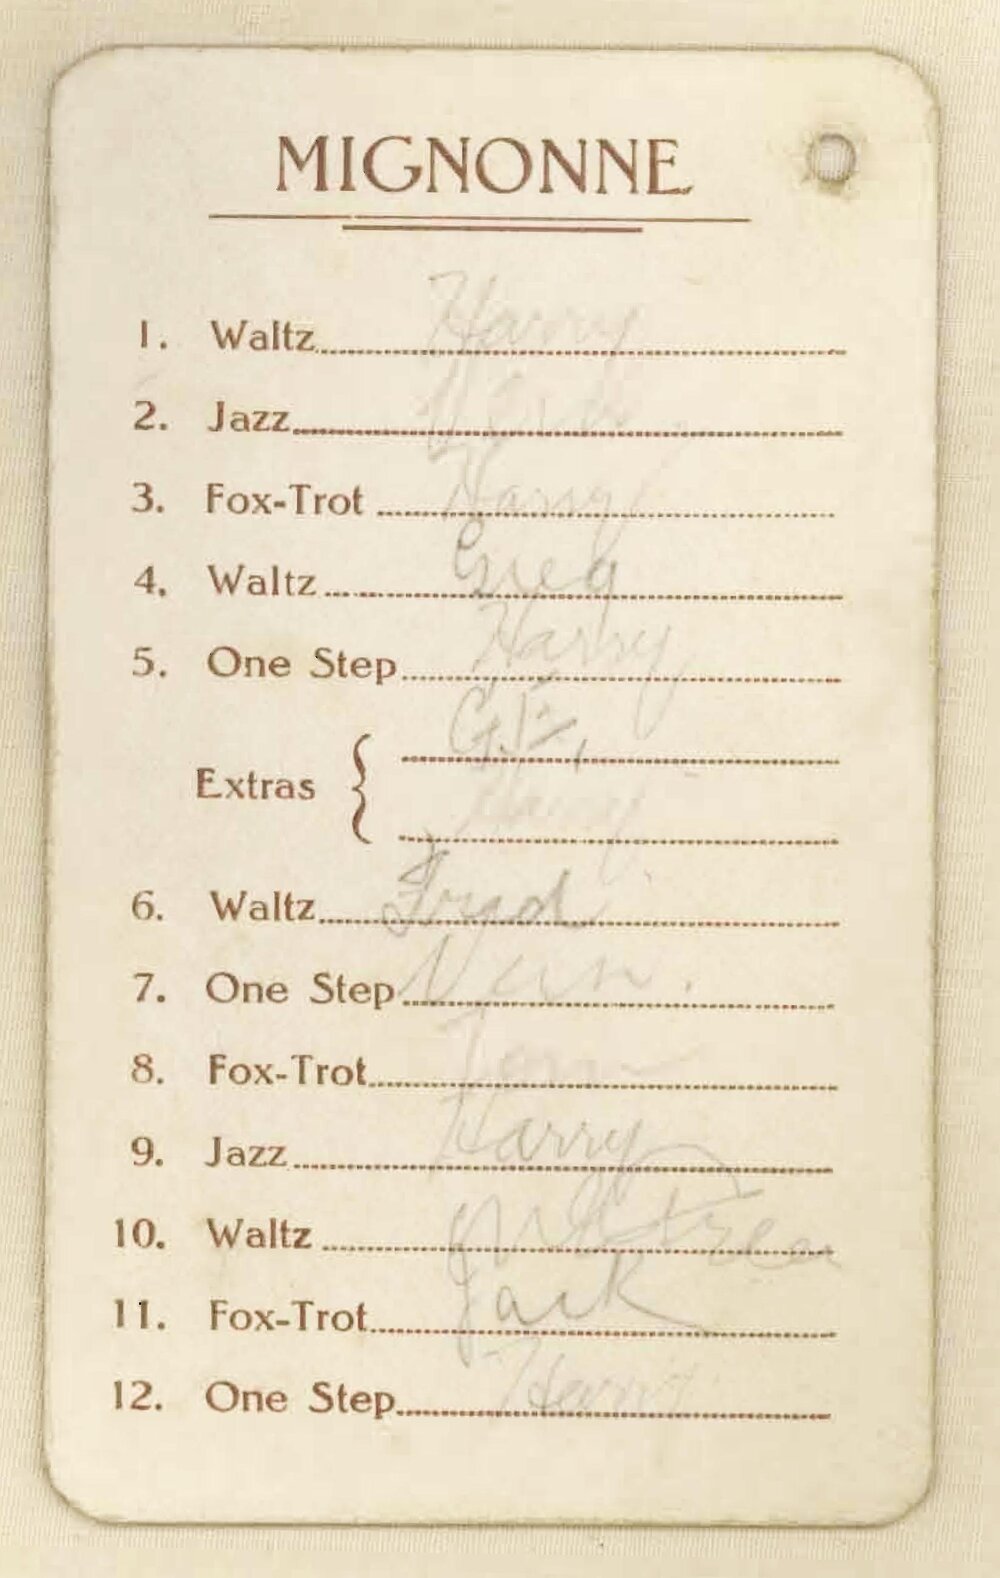 MIGNONNE
1. Waltz Harry
2. Jazz
3. Fox-Trot Harry
4. Waltz Greg
5. One Step Harry
Extras { G.E.
Harry
6. Waltz Fred
7. One Step Vern.
8. Fox-Trot
9. Jazz Harry
10. Waltz
11. Fox-Trot Jack
12. One Step Harry